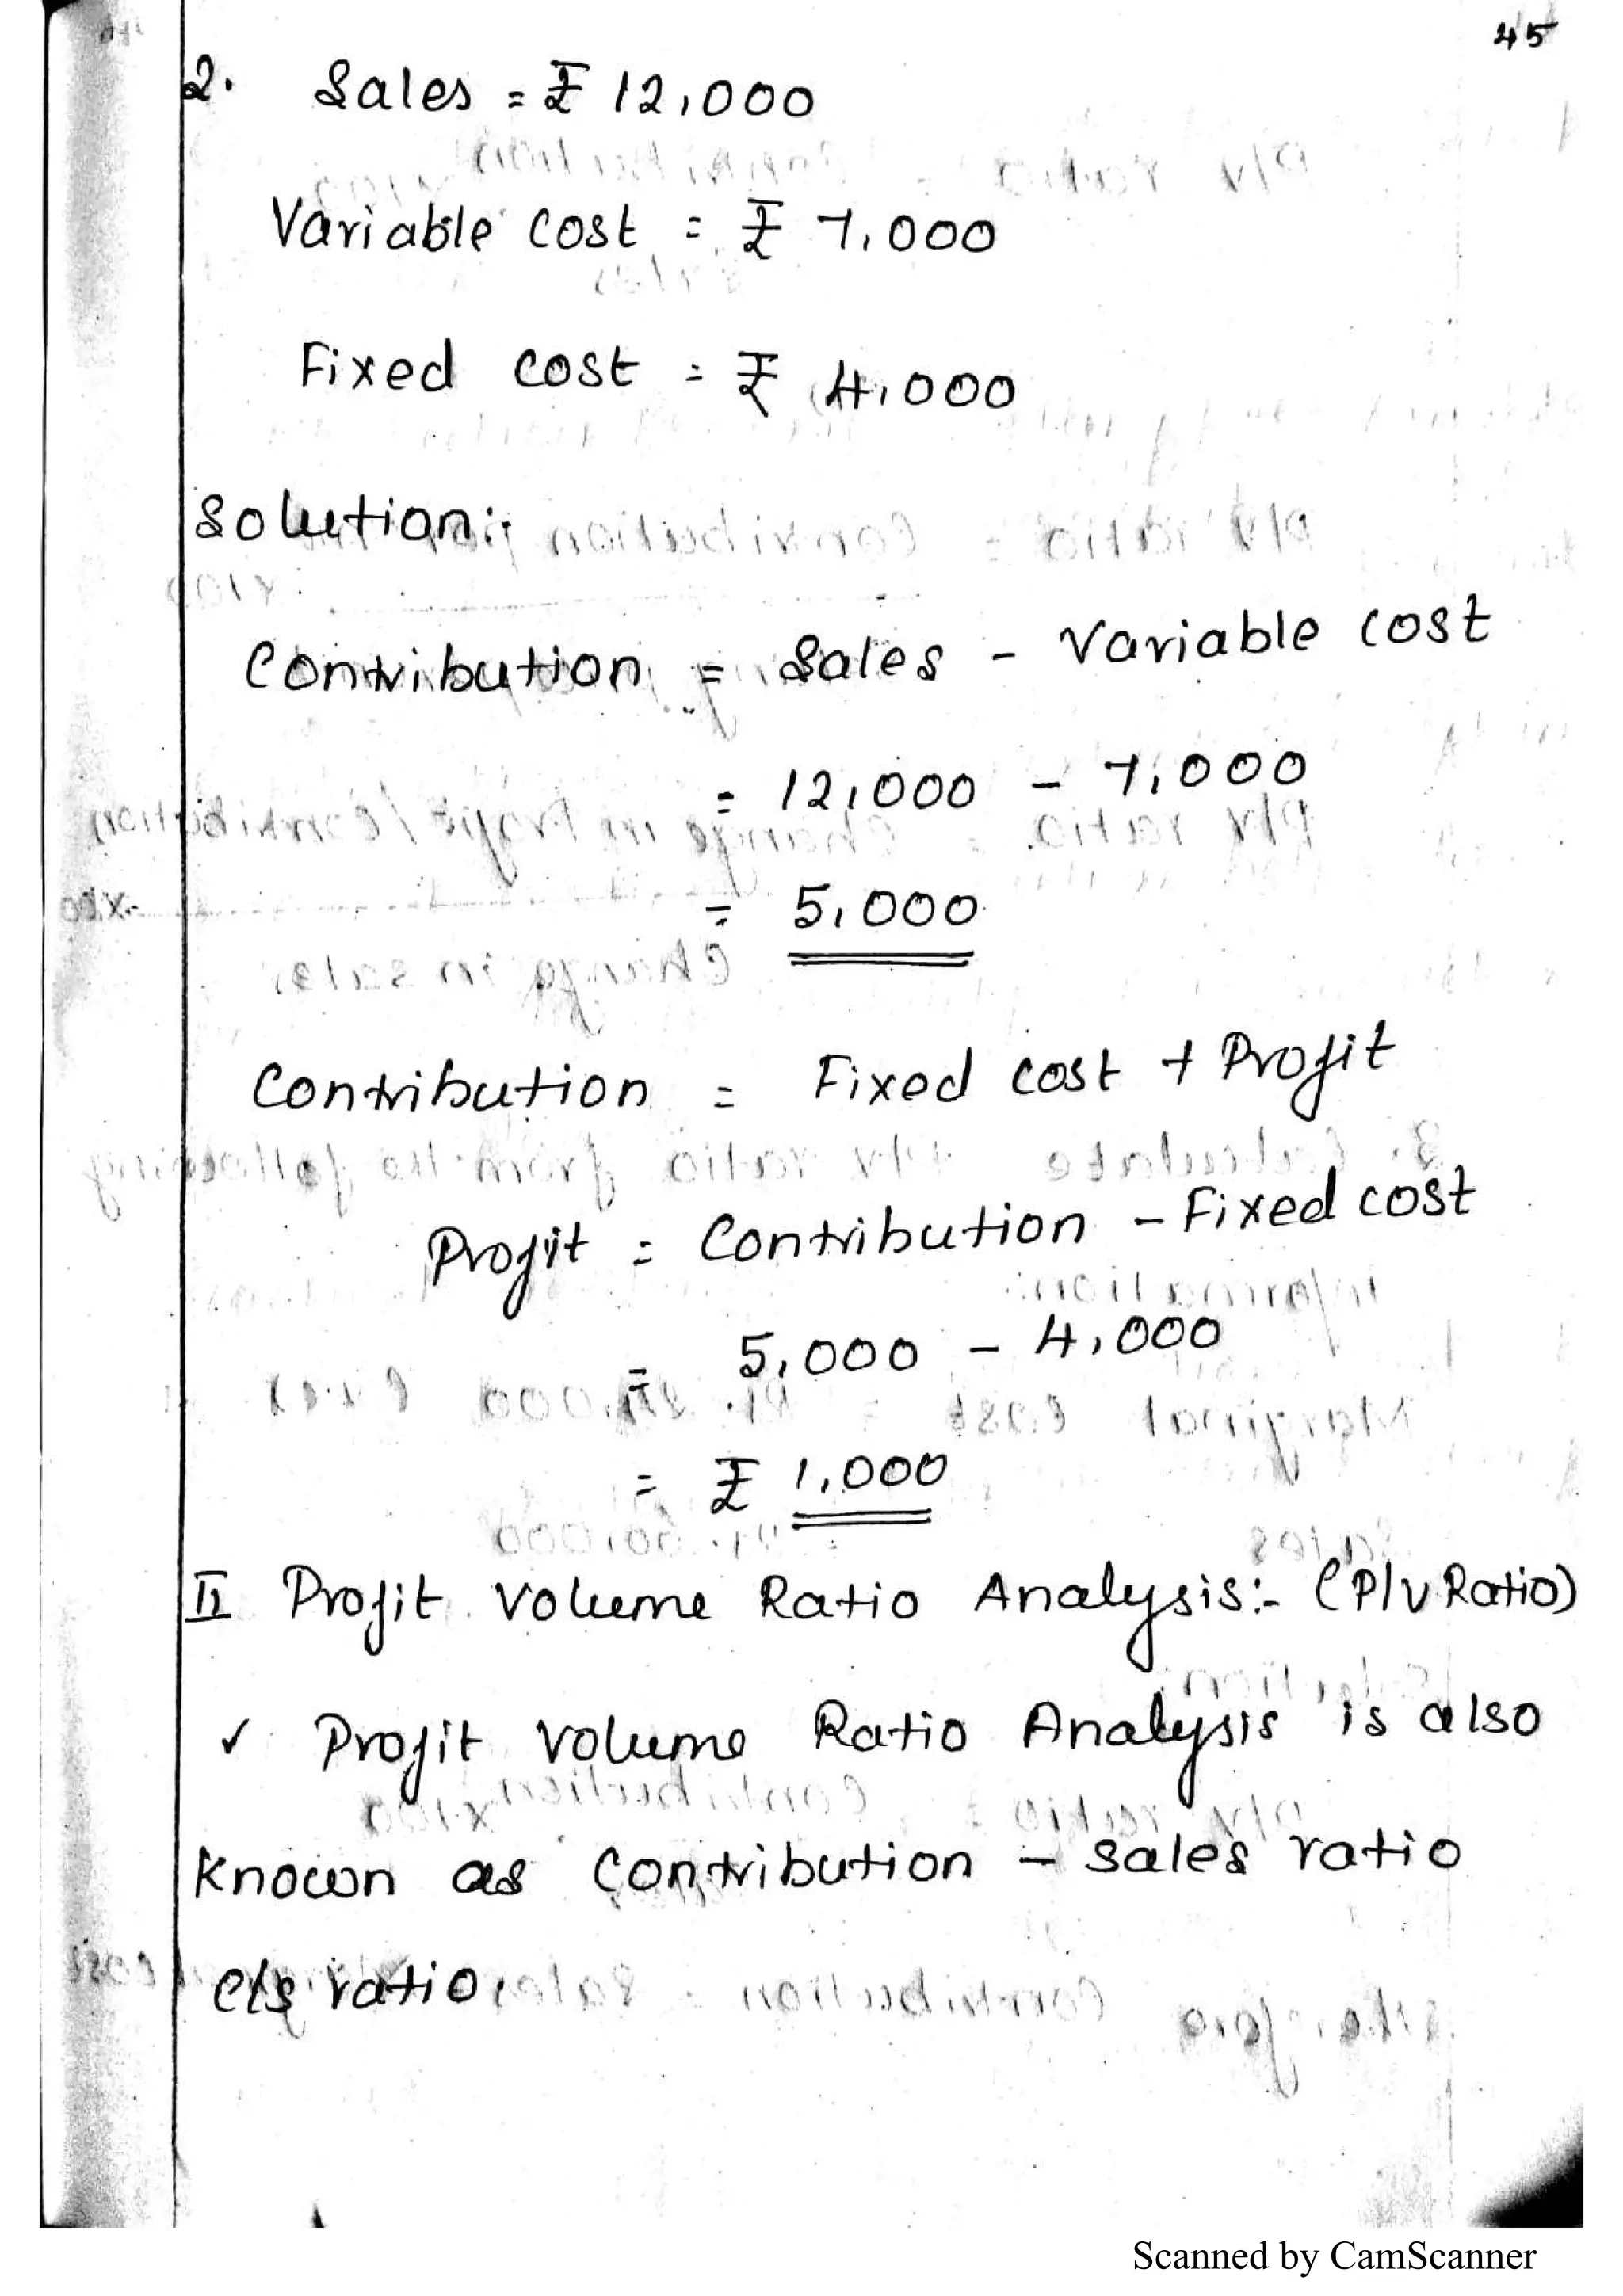 45
2. Sales = ₹ 12,000
Variable cost = ₹ 7,000
Fixed cost = ₹ 4,000
Solution:-
Contribution = Sales - Variable cost
= 12,000 - 7,000
= 5,000
Contribution = Fixed cost + Profit
Profit = Contribution - Fixed cost
= 5,000 - 4,000
= ₹ 1,000
II Profit Volume Ratio Analysis:- (P/V Ratio)
✓ Profit Volume Ratio Analysis is also
Known as Contribution - Sales ratio
C/S ratio.
Scanned by CamScanner